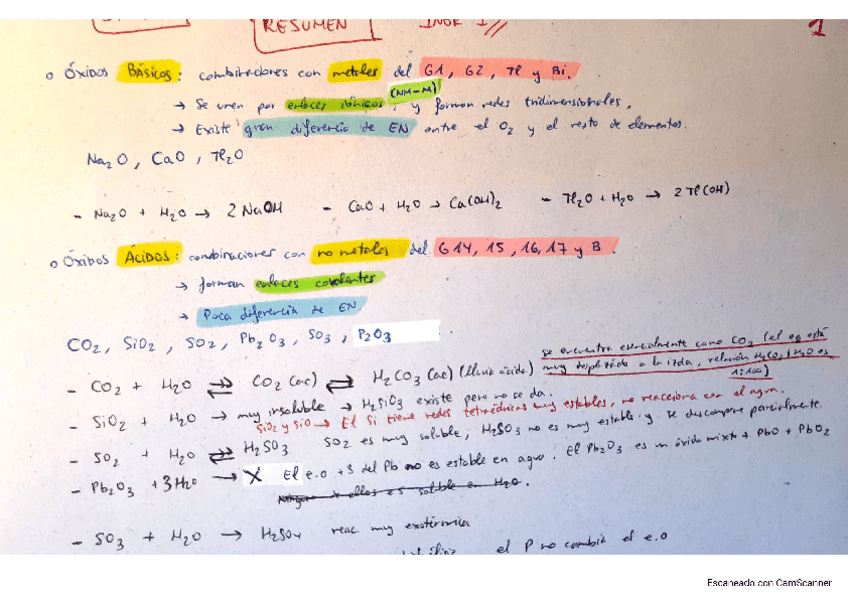 RESUMEN INOR I // 1
o Óxidos Básicos: combinaciones con metales del G1, G2, Tl y Bi.
(NM-M)
→ Se unen por enlaces iónicos, y forman redes tridimensionales.
→ Existe gran diferencia de EN entre el O2 y el resto de elementos.
Na2O, CaO, Tl2O
- Na2O + H2O → 2 NaOH - CaO + H2O → Ca(OH)2 - Tl2O + H2O → 2 Tl(OH)
o Óxidos Ácidos: combinaciones con no metales del G14, 15, 16, 17 y B.
→ forman enlaces covalentes
→ Poca diferencia de EN
CO2, SiO2, SO2, Pb2O3, SO3, P2O3
se encuentra esencialmente como CO2 (el eq está
muy desplazado a la izda, relación H2CO3/H2O es
1:100)
- CO2 + H2O ⇌ CO2 (ac) ⇌ H2CO3 (ac) (lluvia ácida)
- SiO2 + H2O → muy insoluble → H2SiO3 existe pero no se da.
SiO2 y SiO → El Si tiene redes tetraédricas muy estables, no reacciona con el agua.
- SO2 + H2O ⇌ H2SO3 SO2 es muy soluble, H2SO3 no es muy estable y se descompone parcialmente.
- Pb2O3 + 3H2O → X El e.o +3 del Pb no es estable en agua. El Pb2O3 es un óxido mixto → PbO + PbO2
de ellos es soluble en H2O.
- SO3 + H2O → H2SO4 reac. muy exotérmica
el P no cambia el e.o
Escaneado con CamScanner